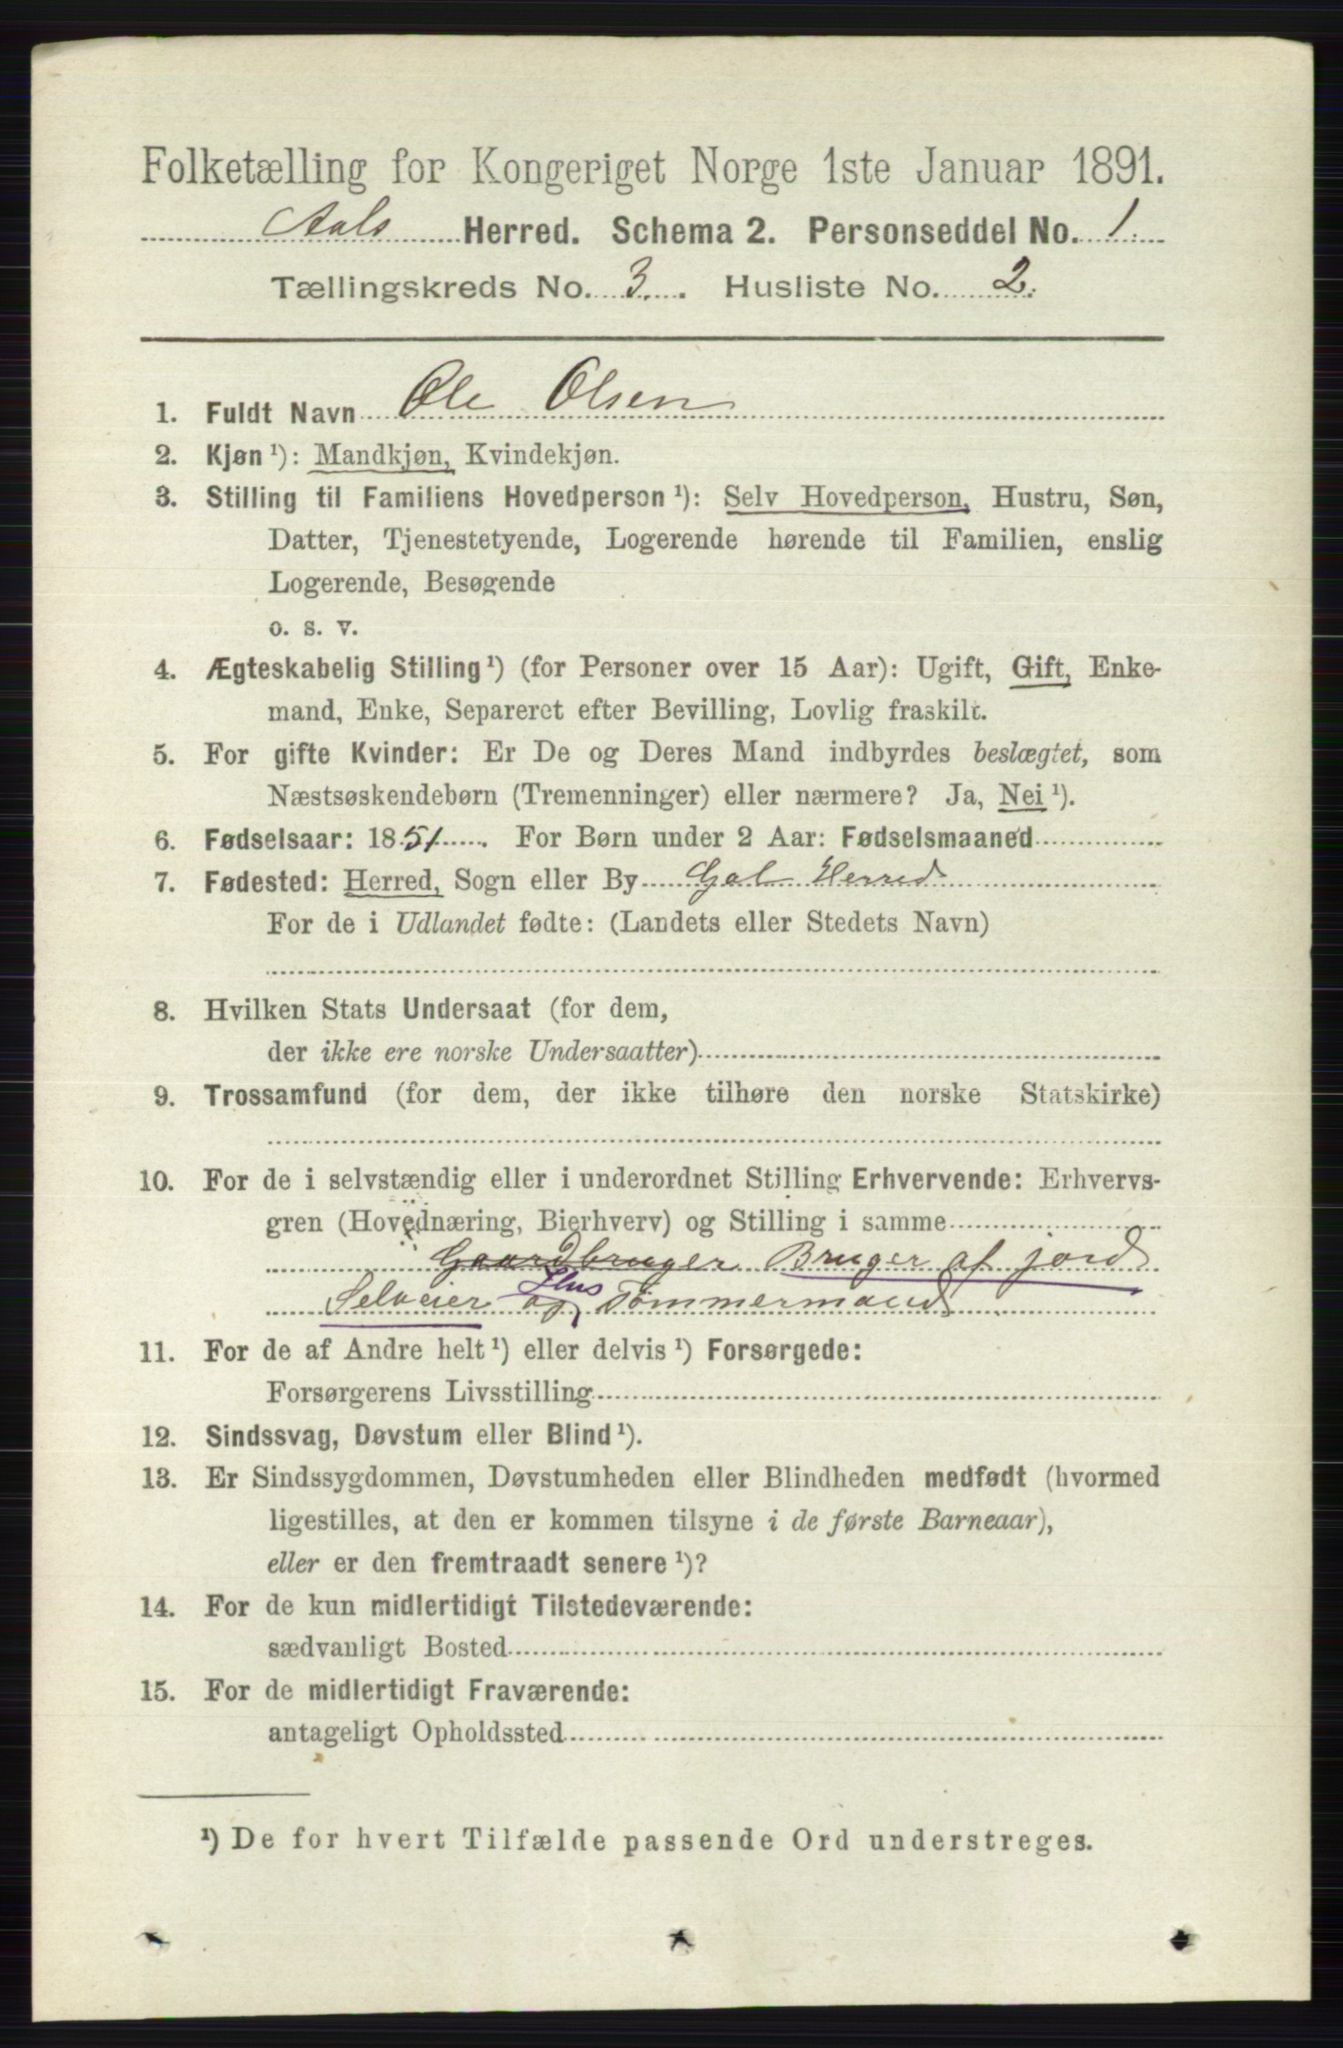 Folketælling for Kongeriget Norge 1ste Januar 1891.
Aals Herred. Schema 2. Personseddel No. 1.
Tællingskreds No. 3. Husliste No. 2.
1. Fuldt Navn Ole Olsen
2. Kjøn ¹): Mandkjøn, Kvindekjøn.
3. Stilling til Familiens Hovedperson ¹): Selv Hovedperson, Hustru, Søn,
Datter, Tjenestetyende, Logerende hørende til Familien, enslig
Logerende, Besøgende
o. s. v.
4. Ægteskabelig Stilling ¹) (for Personer over 15 Aar): Ugift, Gift, Enke-
mand, Enke, Separeret efter Bevilling, Lovlig fraskilt.
5. For gifte Kvinder: Er De og Deres Mand indbyrdes beslægtet, som
Næstsøskendebørn (Tremenninger) eller nærmere? Ja, Nei ¹).
6. Fødselsaar: 1851. For Børn under 2 Aar: Fødselsmaaned
7. Fødested: Herred, Sogn eller By Gol Herred
For de i Udlandet fødte: (Landets eller Stedets Navn)
8. Hvilken Stats Undersaat (for dem,
der ikke ere norske Undersaatter)
9. Trossamfund (for dem, der ikke tilhøre den norske Statskirke)
10. For de i selvstændig eller i underordnet Stilling Erhvervende: Erhvervs-
gren (Hovednæring, Bierhverv) og Stilling i samme
Gaardbruger Bruger af jord
Selveier og Hus Tømmermand.
11. For de af Andre helt ¹) eller delvis ¹) Forsørgede:
Forsørgerens Livsstilling
12. Sindssvag, Døvstum eller Blind ¹).
13. Er Sindssygdommen, Døvstumheden eller Blindheden medfødt (hvormed
ligestilles, at den er kommen tilsyne i de første Barneaar),
eller er den fremtraadt senere ¹)?
14. For de kun midlertidigt Tilstedeværende:
sædvanligt Bosted
15. For de midlertidigt Fraværende:
antageligt Opholdssted
¹) De for hvert Tilfælde passende Ord understreges.